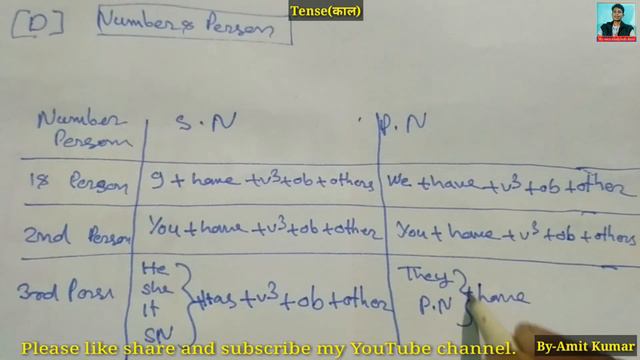 Tense(काल)
[D] Number & Person
Number Person S.N P.N
1st Person I + have + v³ + ob + others We + have + v³ + ob + other
2nd Person You + have + v³ + ob + other You + have + v³ + ob + others
3rd Person He She It SN } + Has + v³ + ob + other They P.N } + have
Please like share and subscribe my YouTube channel. By-Amit Kumar